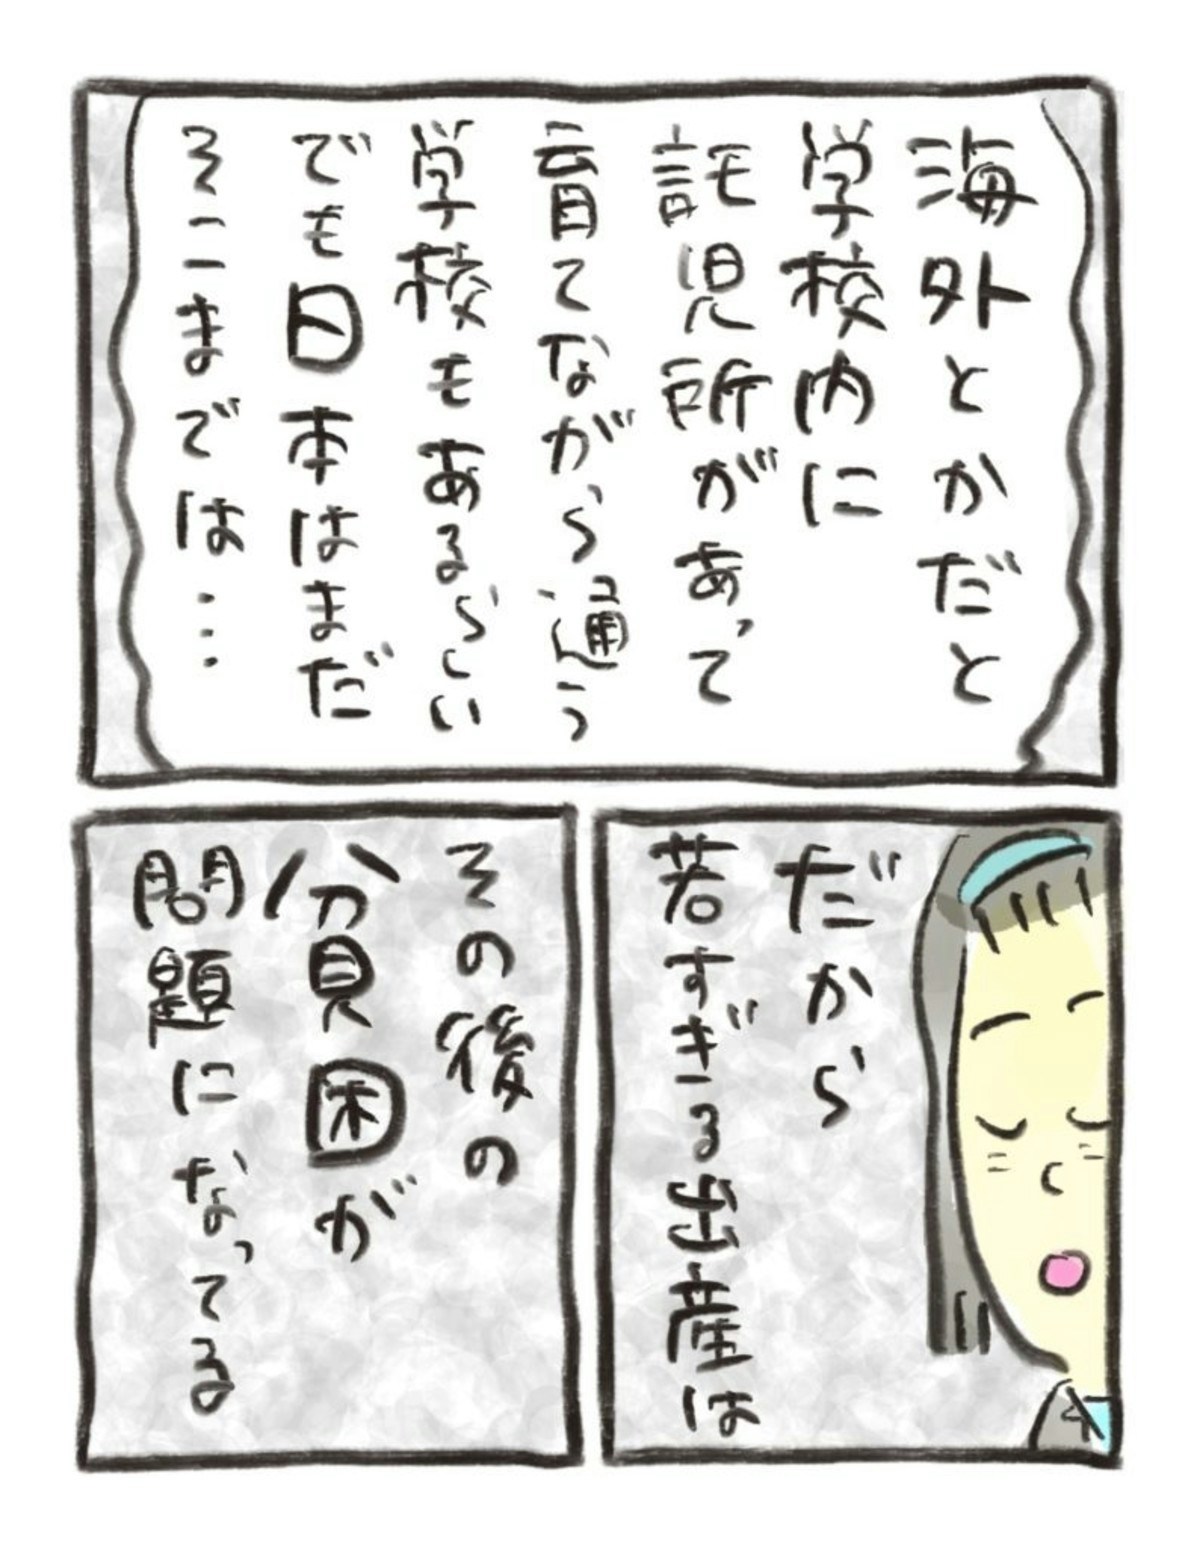 海外とかだと
学校内に
託児所があって
育てながら通う
学校もあるらしい
でも日本はまだ
そこまでは…
だから
若すぎる出産は
その後の
貧困が
問題になってる